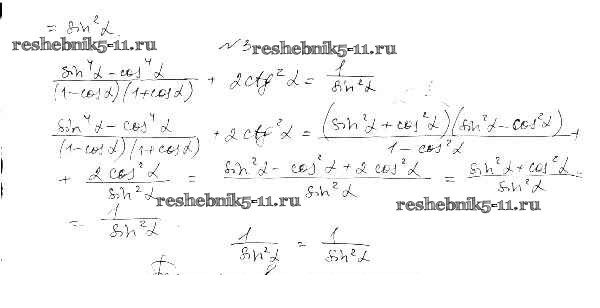 = sin²α.
reshebnik5-11.ru
№3 reshebnik5-11.ru
(sin⁴α - cos⁴α)/((1-cosα)(1+cosα)) + 2ctg²α = 1/sin²α
(sin⁴α - cos⁴α)/((1-cosα)(1+cosα)) + 2ctg²α = (sin²α + cos²α)(sin²α - cos²α)/(1 - cos²α) +
+ 2cos²α/sin²α = (sin²α - cos²α + 2cos²α)/sin²α = (sin²α + cos²α)/sin²α =
reshebnik5-11.ru reshebnik5-11.ru
= 1/sin²α.
1/sin²α = 1/sin²α